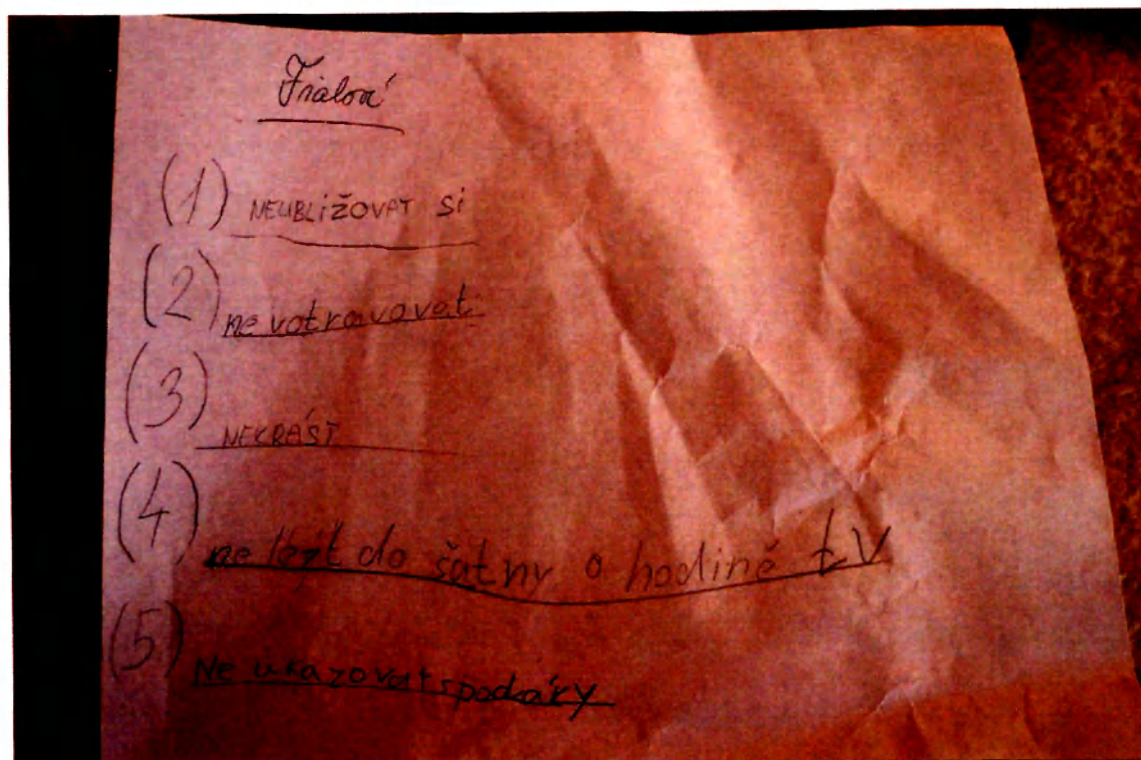 Fialoví
(1) NEUBLIŽOVAT SI
(2) ne votravovat
(3) NEKRÁST
(4) ne lézt do šatny o hodině tV
(5) Ne ukazovat spodáry